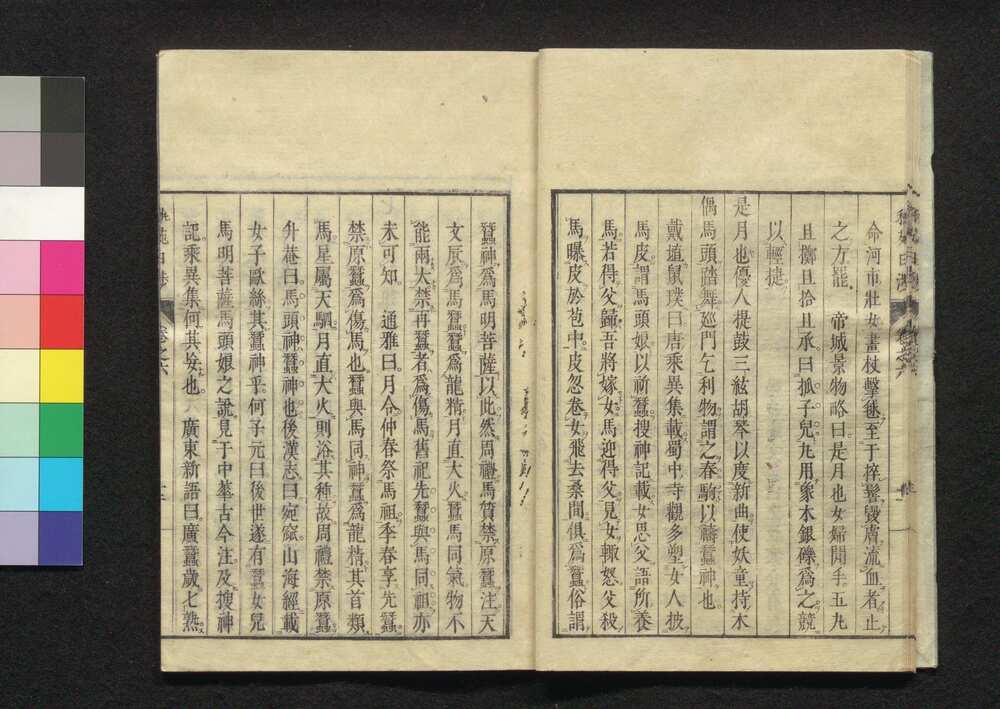 命河市壯女畫杖擊毬至于捽髻毀膚流血者止
之方罷 帝城景物略曰是月也女婦閒手五丸
且擲且拾且承曰抓子兒丸用象木銀礫爲之競
以輕捷
是月也優人提鼓三絃胡琴以度新曲使妖童持木
偶馬頭踏舞廵門乞利物謂之春駒以禱蠶神也
戴埴鼠璞曰唐乘異集載蜀中寺觀多塑女人披
馬皮謂馬頭娘以祈蠶搜神記載女思父語所養
馬若得父歸吾將嫁女馬迎得父見女輒怒父殺
馬曝皮於苞中皮忽卷女飛去桑間俱爲蠶俗謂
蠶神爲馬明菩薩以此然周禮馬質禁原蠶注天
文辰爲馬蠶蠶爲龍精月直大火蠶馬同氣物不
能兩大禁再蠶者爲傷馬舊祀先蠶與馬同祖亦
未可知 通雅曰月令仲春祭馬祖季春享先蠶
禁原蠶爲傷馬也蠶與馬同神蠶爲龍精其首類
馬星屬天駟月直大火則浴其種故周禮禁原蠶
升菴曰馬頭神蠶神也後漢志曰宛窳山海經載
女子歐絲其蠶神乎何子元曰後世遂有蠶女兒
馬明菩薩馬頭娘之說見于中華古今注及搜神
記乘異集何其妄也 廣東新語曰廣蠶歲七熟
卷之六